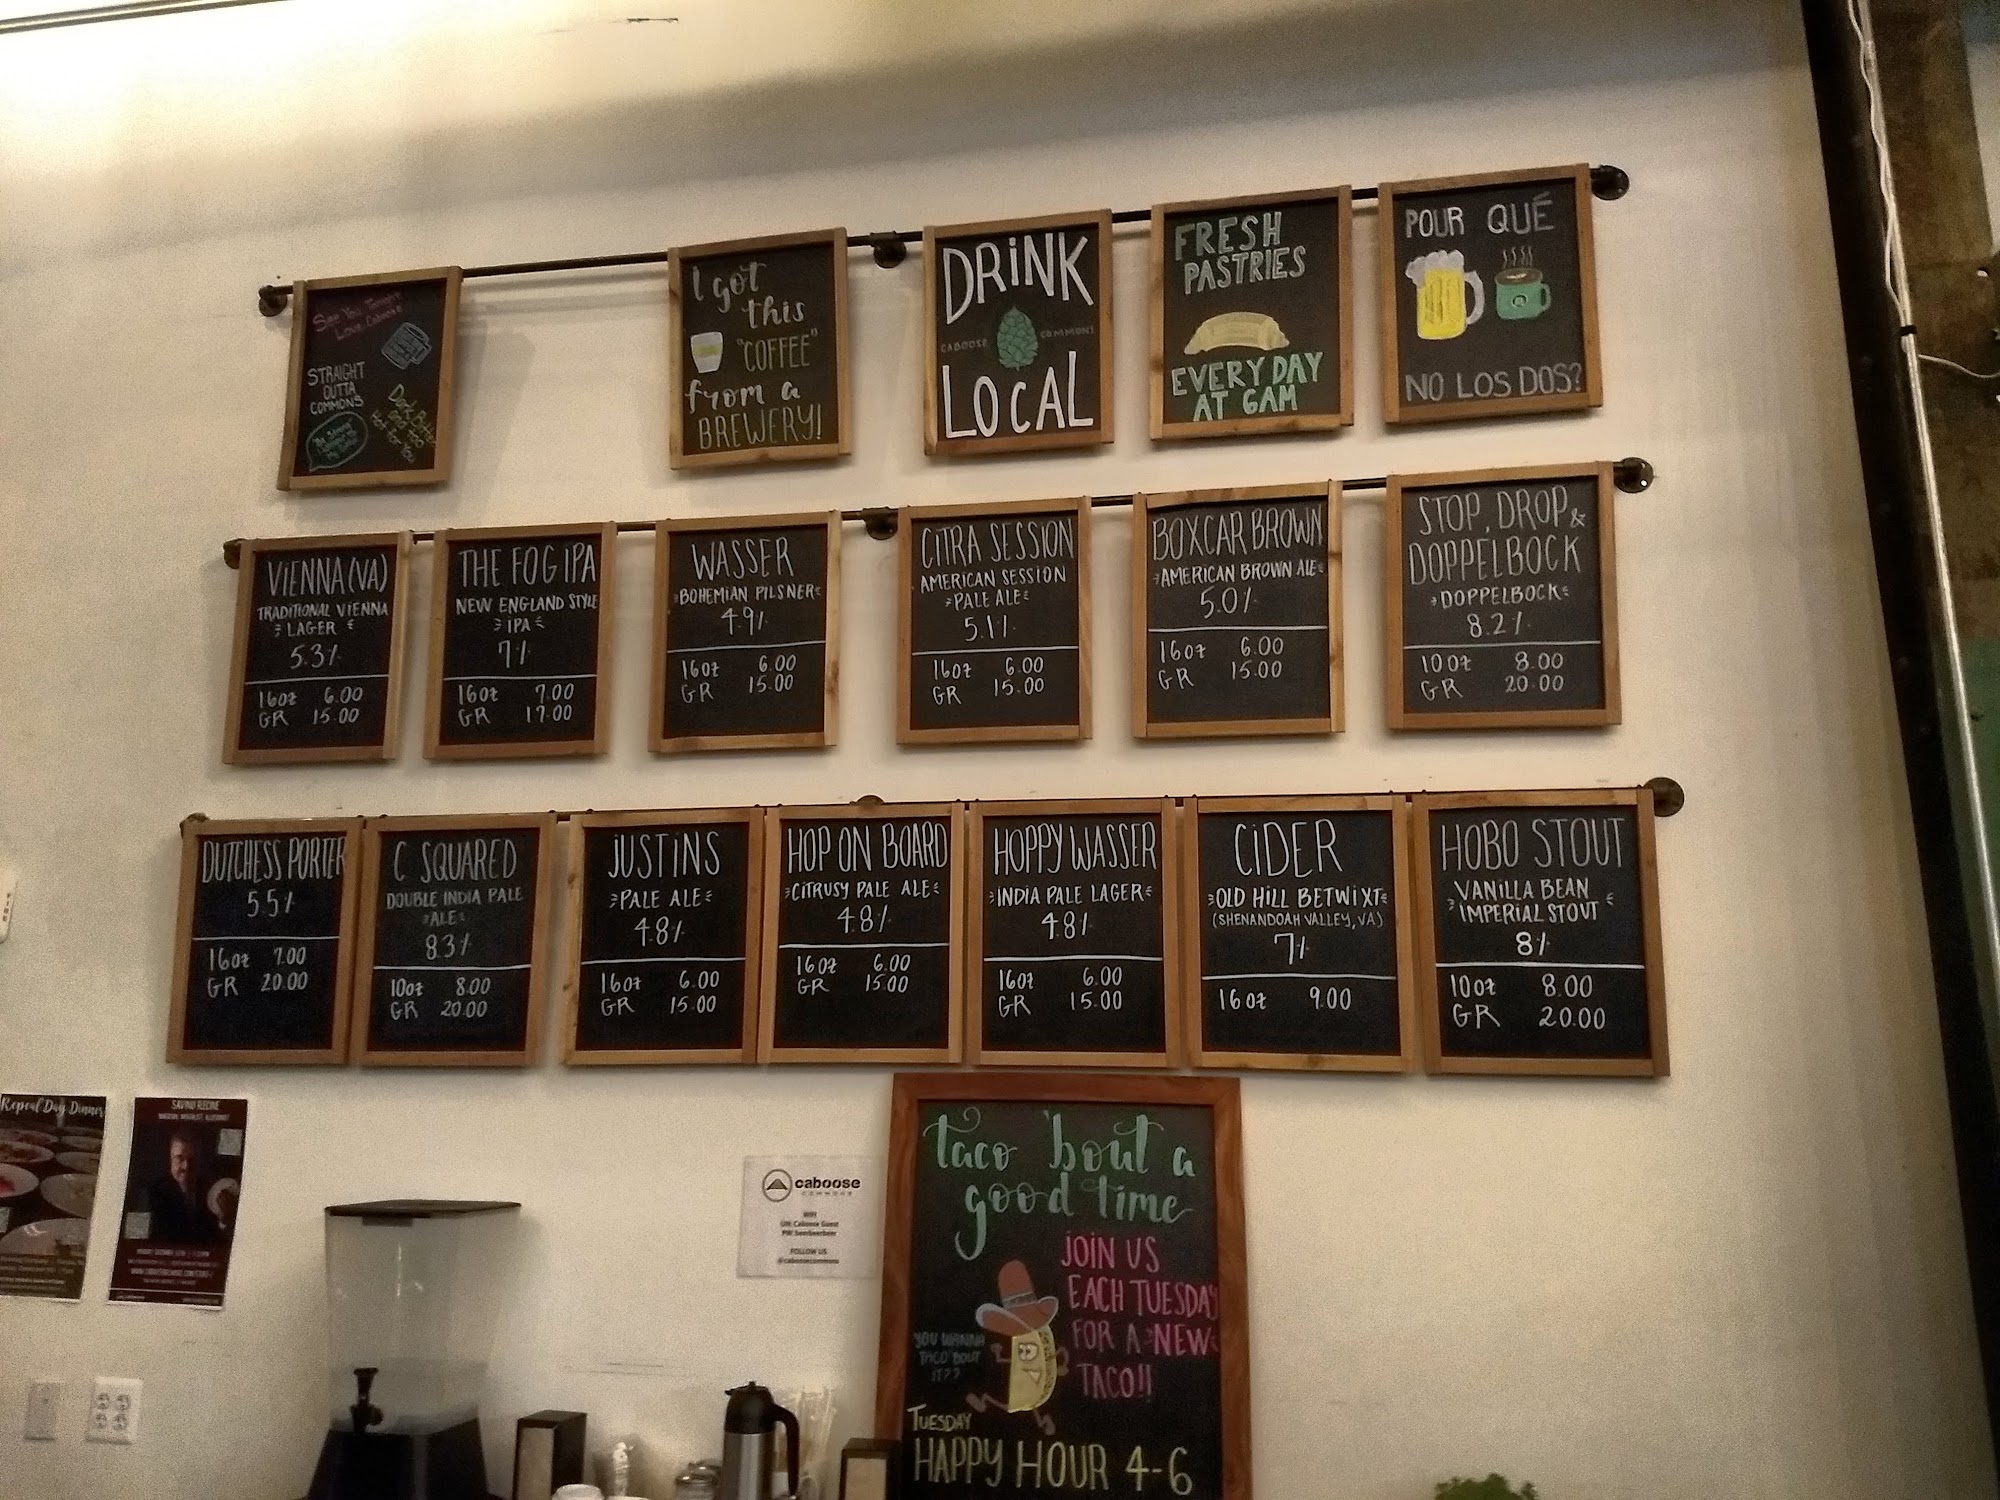 See You Tonight
Love, Caboose
STRAIGHT
OUTTA
COMMONS
Dark, Bitter
and too
Hot for You
I got
this
"COFFEE"
from a
BREWERY!
DRINK
CABOOSE COMMONS
LOCAL
FRESH
PASTRIES
EVERY DAY
AT 6AM
POUR QUÉ
NO LOS DOS?
VIENNA (VA)
TRADITIONAL VIENNA
LAGER
5.3%
16oz 6.00
GR 15.00
THE FOG IPA
NEW ENGLAND STYLE
IPA
7%
16oz 7.00
GR 17.00
WASSER
BOHEMIAN PILSNER
4.9%
16oz 6.00
GR 15.00
CITRA SESSION
AMERICAN SESSION
PALE ALE
5.1%
16oz 6.00
GR 15.00
BOXCAR BROWN
AMERICAN BROWN ALE
5.0%
16oz 6.00
GR 15.00
STOP, DROP &
DOPPELBOCK
DOPPELBOCK
8.2%
10oz 8.00
GR 20.00
DUTCHESS PORTER
5.5%
16oz 7.00
GR 20.00
C SQUARED
DOUBLE INDIA PALE
ALE
8.3%
10oz 8.00
GR 20.00
JUSTINS
PALE ALE
4.8%
16oz 6.00
GR 15.00
HOP ON BOARD
CITRUSY PALE ALE
4.8%
16oz 6.00
GR 15.00
HOPPY WASSER
INDIA PALE LAGER
4.8%
16oz 6.00
GR 15.00
CIDER
OLD HILL BETWIXT
(SHENANDOAH VALLEY, VA)
7%
16oz 9.00
HOBO STOUT
VANILLA BEAN
IMPERIAL STOUT
8%
10oz 8.00
GR 20.00
Repeal Day Dinner
SAVINO RECINE
caboose
COMMONS
WIFI
UN: Caboose Guest
PW: beerbeerbeer
FOLLOW US
@caboosecommons
taco 'bout a
good time
JOIN US
EACH TUESDAY
FOR A NEW
TACO!!
YOU WANNA
TACO 'BOUT
IT??
TUESDAY
HAPPY HOUR 4-6